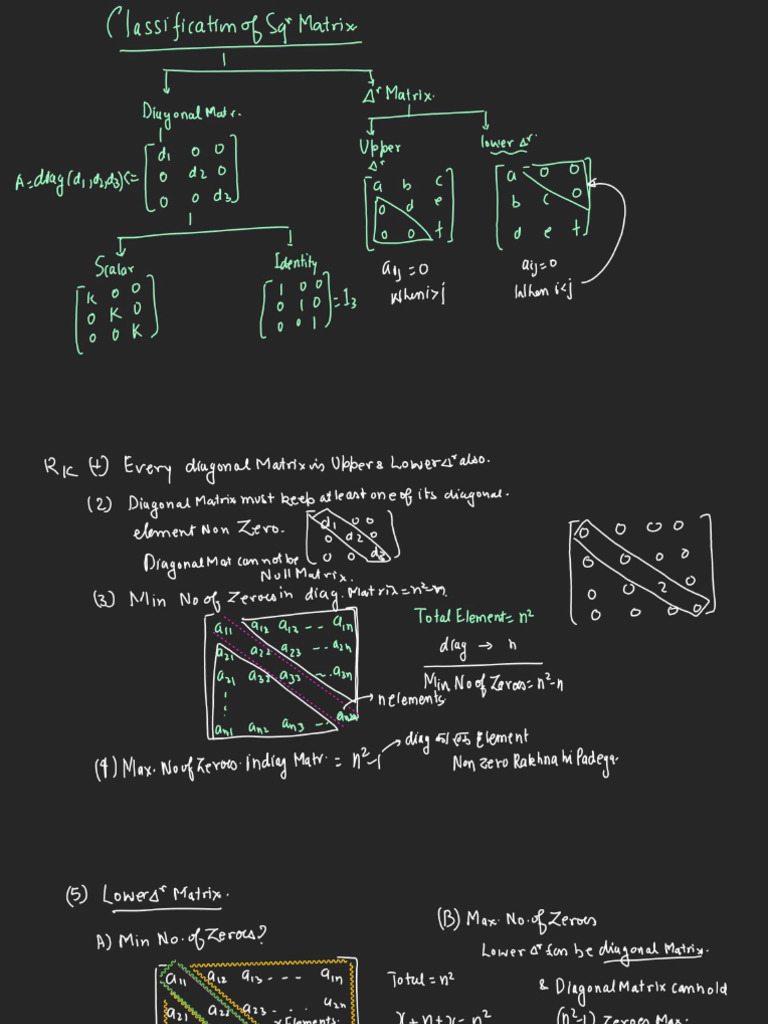 Classification of Sqr Matrix
Diagonal Matr.
Δr Matrix.
A=diag(d1,d2,d3)<=
d1 0 0
0 d2 0
0 0 d3
Upper Δr
a b c
0 d e
0 0 f
aij=0
when i>j
lower Δr.
a 0 0
b c 0
d e f
aij=0
When i<j
Scalar
K 0 0
0 K 0
0 0 K
Identity
1 0 0
0 1 0
0 0 1
=I3
RK (1) Every diagonal Matrix is Upper & Lower Δr also.
(2) Diagonal Matrix must keep at least one of its diagonal.
element Non Zero.
d1 0 0
0 d2 0
0 0 d3
Diagonal Mat can not be
Null Matrix.
0 0 0 0
0 0 0 0
0 0 2 0
0 0 0 0
(3) Min No of Zeroes in diag. Matrix=n²-n
a11 a12 a13 -- a1n
a21 a22 a23 -- a2n
a31 a32 a33 -- a3n
an1 an2 an3 -- ann
n elements
Total Element= n²
diag → n
Min No of Zeroes=n²-n
(4) Max. No of Zeroes in diag Matr. = n²-1
diag का एक Element
Non Zero Rakhna hi Padega.
(5) Lower Δr Matrix.
A) Min No. of Zeroes?
a11 a12 a13 --- a1n
a21 a22 a23 --- a2n
x Elements
(B) Max. No. of Zeroes
Lower Δr can be diagonal Matrix.
Total = n²
& Diagonal Matrix can hold
x+n+x= n²
(n²-1) Zeroes Max.